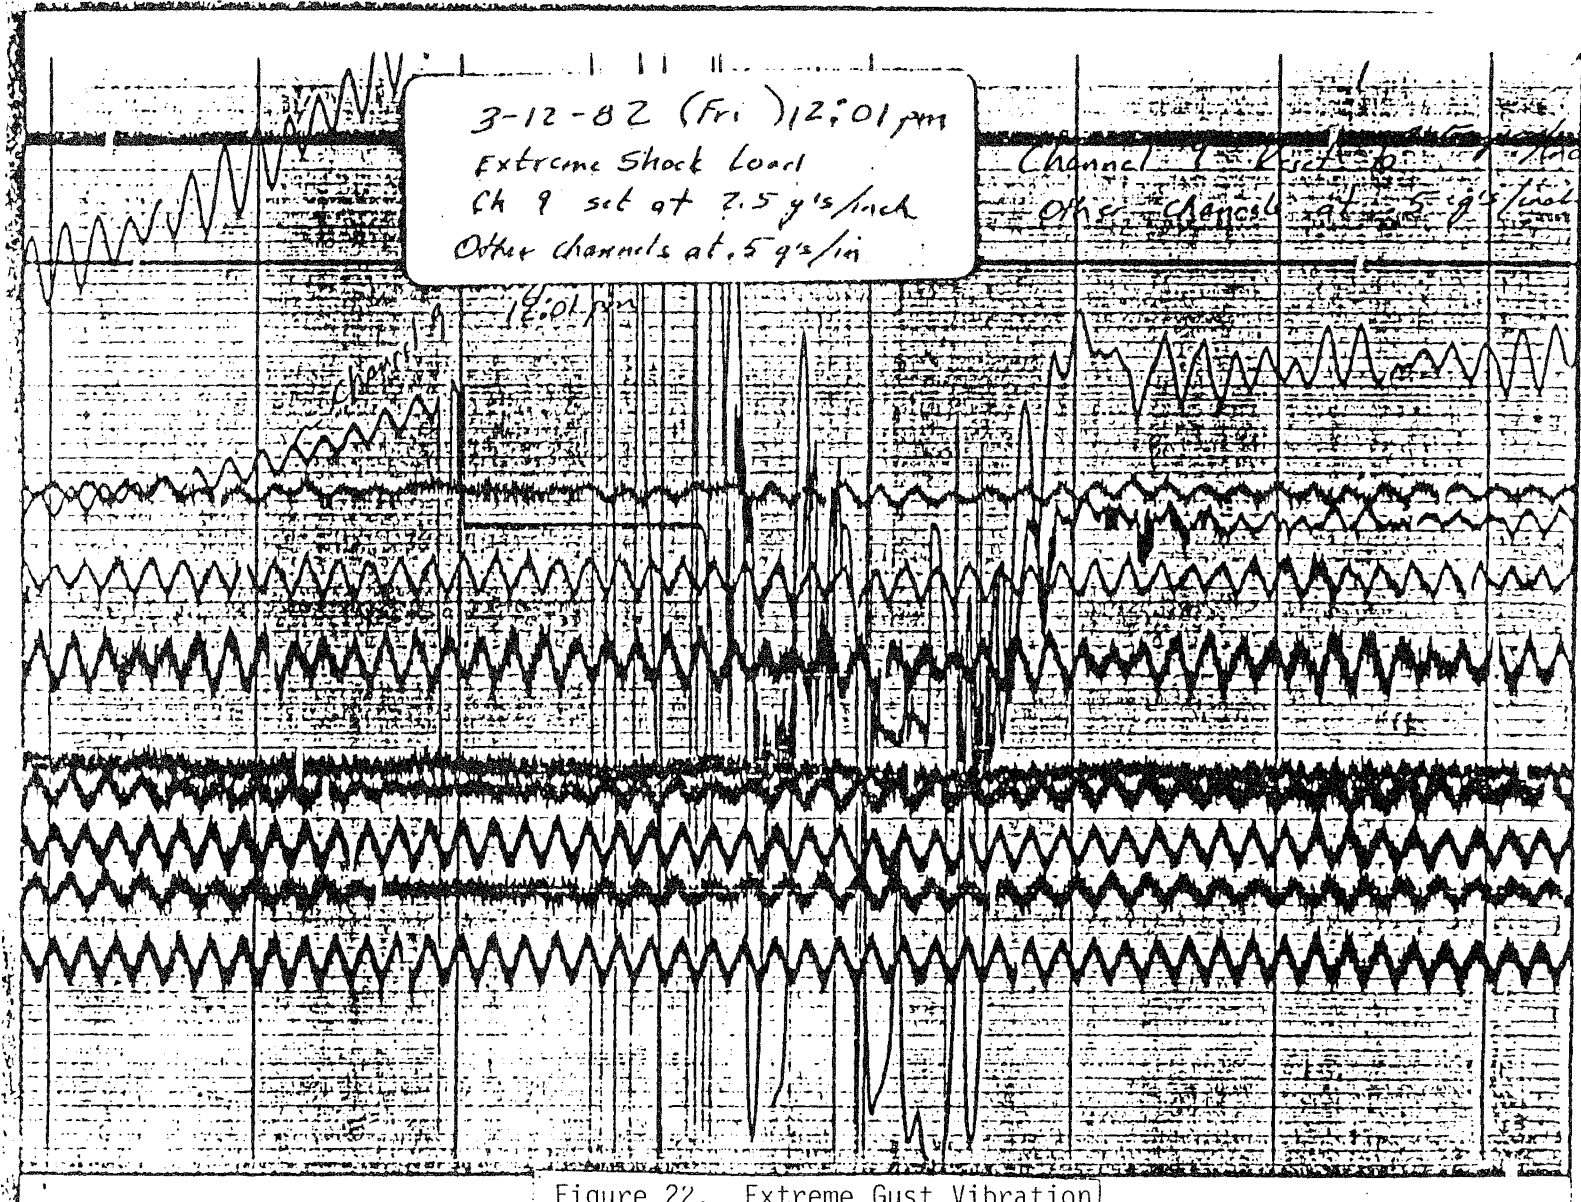 3-12-82 (Fri) 12:01 pm
Extreme Shock Load
Ch 9 set at 2.5 g's/inch
Other channels at .5 g's/in
Channel 9
Other channels at .5 g's/inch
12:01 pm
Channel 9
Figure 22. Extreme Gust Vibration